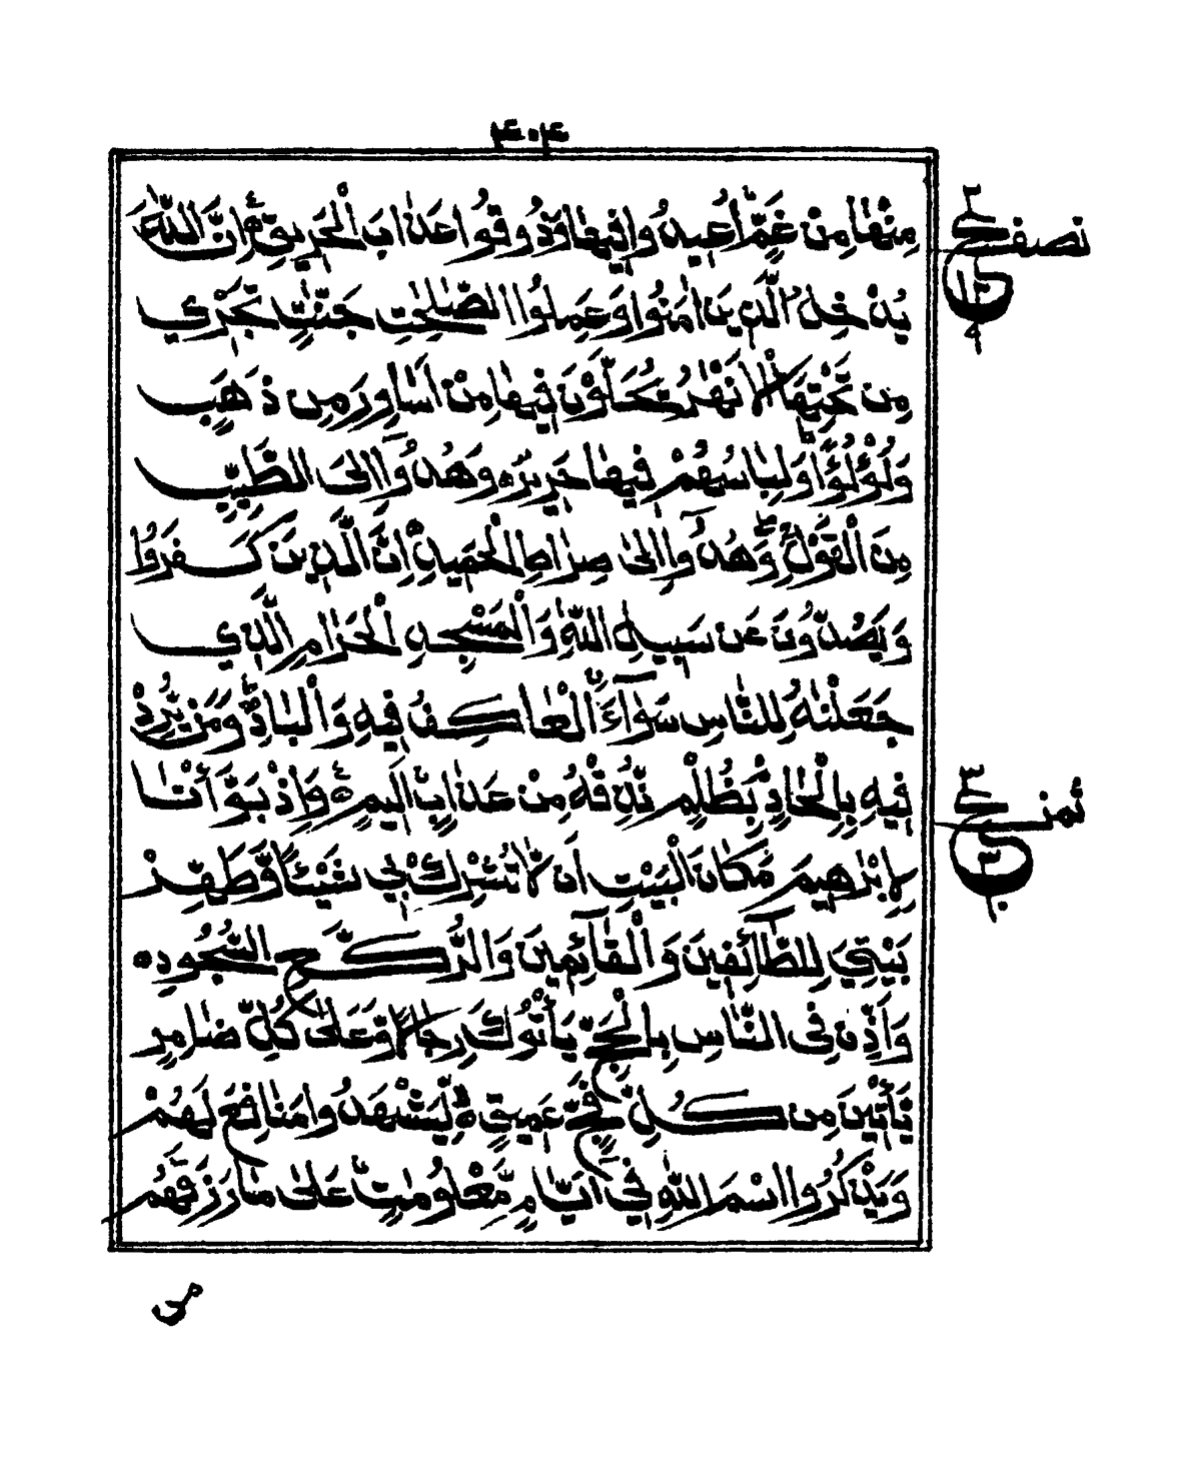 ۴۰۴
مِنْهَا مِنْ غَمٍّ اُعِيدُوا فِيهَا وَذُوقُوا عَذَابَ الْحَرِيقِ ۝ اِنَّ اللّٰهَ
يُدْخِلُ الَّذِينَ اٰمَنُوا وَعَمِلُوا الصّٰلِحٰتِ جَنّٰتٍ تَجْرِي
مِن تَحْتِهَا الْاَنْهٰرُ يُحَلَّوْنَ فِيهَا مِنْ اَسَاوِرَ مِن ذَهَبٍ
وَلُؤْلُؤًا وَلِبَاسُهُمْ فِيهَا حَرِيرٌ ۝ وَهُدُوٓا اِلَى الطَّيِّبِ
مِنَ الْقَوْلِ وَهُدُوٓا اِلٰى صِرَاطِ الْحَمِيدِ ۝ اِنَّ الَّذِينَ كَفَرُوا
وَيَصُدُّونَ عَن سَبِيلِ اللّٰهِ وَالْمَسْجِدِ الْحَرَامِ الَّذِي
جَعَلْنٰهُ لِلنَّاسِ سَوَآءَ اۨلْعَاكِفُ فِيهِ وَالْبَادِ وَمَن يُّرِدْ
فِيهِ بِاِلْحَادٍ بِظُلْمٍ نُّذِقْهُ مِنْ عَذَابٍ اَلِيمٍ ۝ وَاِذْ بَوَّأْنَا
لِاِبْرٰهِيمَ مَكَانَ الْبَيْتِ اَن لَّا تُشْرِكْ بِي شَيْئًا وَّطَهِّرْ
بَيْتِيَ لِلطَّآئِفِينَ وَالْقَآئِمِينَ وَالرُّكَّعِ السُّجُودِ ۝
وَاَذِّن فِى النَّاسِ بِالْحَجِّ يَأْتُوكَ رِجَالًا وَّعَلٰى كُلِّ ضَامِرٍ
يَّأْتِينَ مِن كُلِّ فَجٍّ عَمِيقٍ ۝ لِّيَشْهَدُوا مَنَافِعَ لَهُمْ
وَيَذْكُرُوا اسْمَ اللّٰهِ فِي اَيَّامٍ مَّعْلُومٰتٍ عَلٰى مَا رَزَقَهُم
نصف
ع
ثمن
ع
من